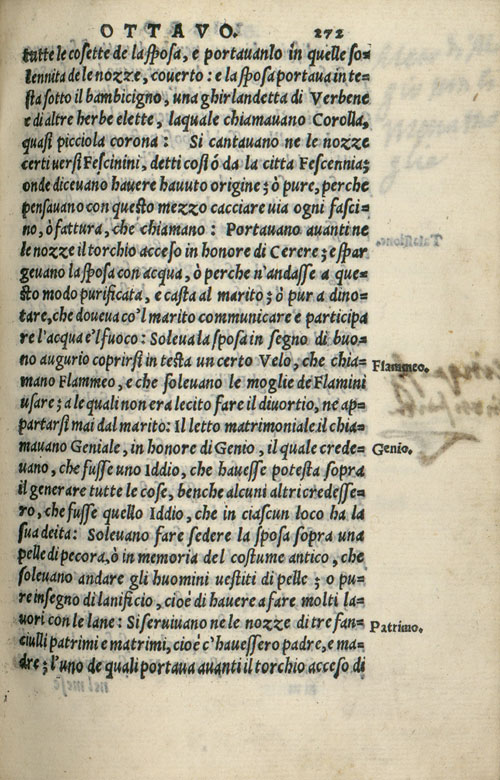 OTTAVO. 272
tutte le cosette de la sposa, e portauanlo in quelle so=
lennita de le nozze, couerto : e la sposa portaua in te=
sta sotto il bambicigno, una ghirlandetta di Verbene
e di altre herbe elette, laquale chiamauano Corolla,
quasi picciola corona : Si cantauano ne le nozze
certi uersi Fescinini, detti cosi ó da la citta Fescennia;
onde diceuano hauere hauuto origine; ò pure, perche
pensauano con questo mezzo cacciare uia ogni fasci=
no, ò fattura, che chiamano : Portauano auanti ne
le nozze il torchio acceso in honore di Cerere; e spar=
geuano la sposa con acqua, ò perche n'andasse a que=
sto modo purificata, e casta al marito; ò pur a dino=
tare, che doueua co'l marito communicare e participa
re l'acqua e'l fuoco : Soleua la sposa in segno di buo=
no augurio coprirsi in testa un certo Velo, che chia=
Flammeo.
mano Flammeo, e che soleuano le moglie de Flamini
usare; a le quali non era lecito fare il diuortio, ne ap=
partarsi mai dal marito: Il letto matrimoniale il chia=
mauano Geniale, in honore di Genio, il quale crede=
Genio.
uano, che fusse uno Iddio, che hauesse potesta sopra
il generare tutte le cose, benche alcuni altri credesse=
ro, che fusse quello Iddio, che in ciascun loco ha la
sua deita : Soleuano fare sedere la sposa sopra una
pelle di pecora, ò in memoria del costume antico, che
soleuano andare gli huomini uestiti di pelle ; o pu=
re in segno di lanificio, cioé di hauere a fare molti la=
uori con le lane : Si seruiuano ne le nozze di tre fan=
Patrimo.
ciulli patrimi e matrimi, cioé c'hauessero padre, e ma=
dre ; l'uno de quali portaua auanti il torchio acceso di